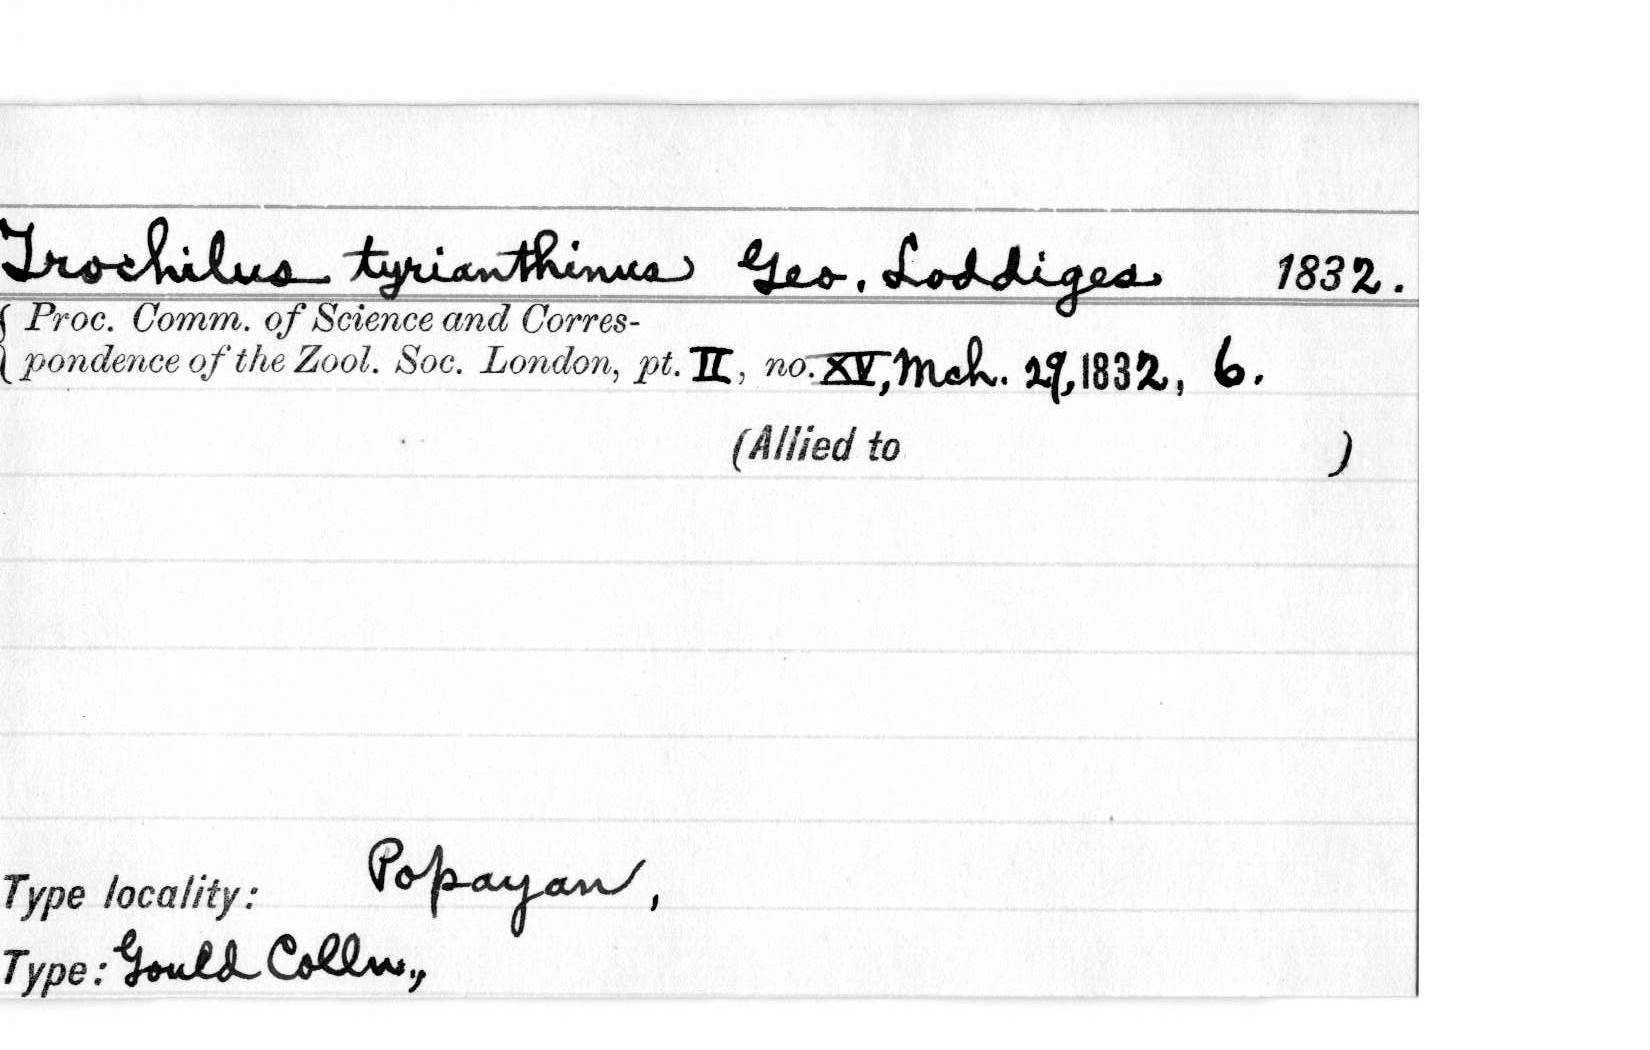 Trochilus tyrianthinus Geo. Loddiges 1832.
{ Proc. Comm. of Science and Corres-
pondence of the Zool. Soc. London, pt. II, no. XV, Mch. 29, 1832, 6.
(Allied to )
Type locality: Popayan,
Type: Gould Colln.,